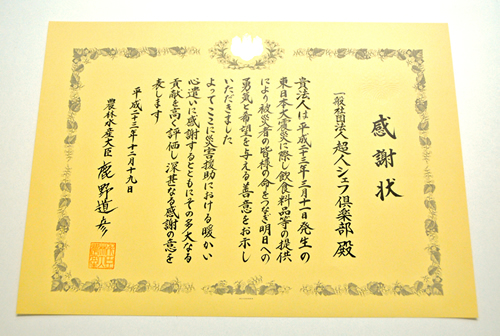 感謝状
一般社団法人 超人シェフ倶楽部 殿
貴法人は平成二十三年三月十一日発生の
東日本大震災に際し飲食料品等の提供
により被災者の皆様の命をつなぎ明日への
勇気と希望を与える善意をお示し
いただきました
よってここに災害援助における暖かい
心遣いに感謝するとともにその多大なる
貢献を高く評価し深甚なる感謝の意を
表します
平成二十三年十二月十九日
農林水産大臣 鹿野道彦